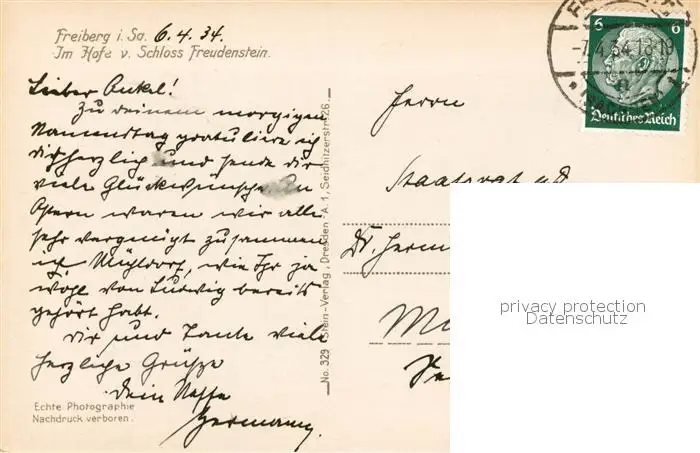 Freiberg i. Sa. 6.4.34.
Im Hofe v. Schloss Freudenstein.
Lieber Onkel!
Zu deinem morgigen
Namenstag gratuliere ich
dir herzlich und sende dir
viele Glückwünsche. An
Ostern waren wir alle
sehr vergnügt zusammen
in Mühldorf, wie Ihr ja
wohl von Ludwig bereits
gehört habt.
Dir und Tante viele
herzliche Grüsse
Dein Neffe
Hermann.
Echte Photographie
Nachdruck verboren.
No. 329 Stein-Verlag, Dresden-A. 1, Seidnitzerstr. 26.
6 6
-7.4.34.18-19
Deutsches Reich
Herrn
Staatsrat a.D.
Dr. Herm
privacy protection
Datenschutz